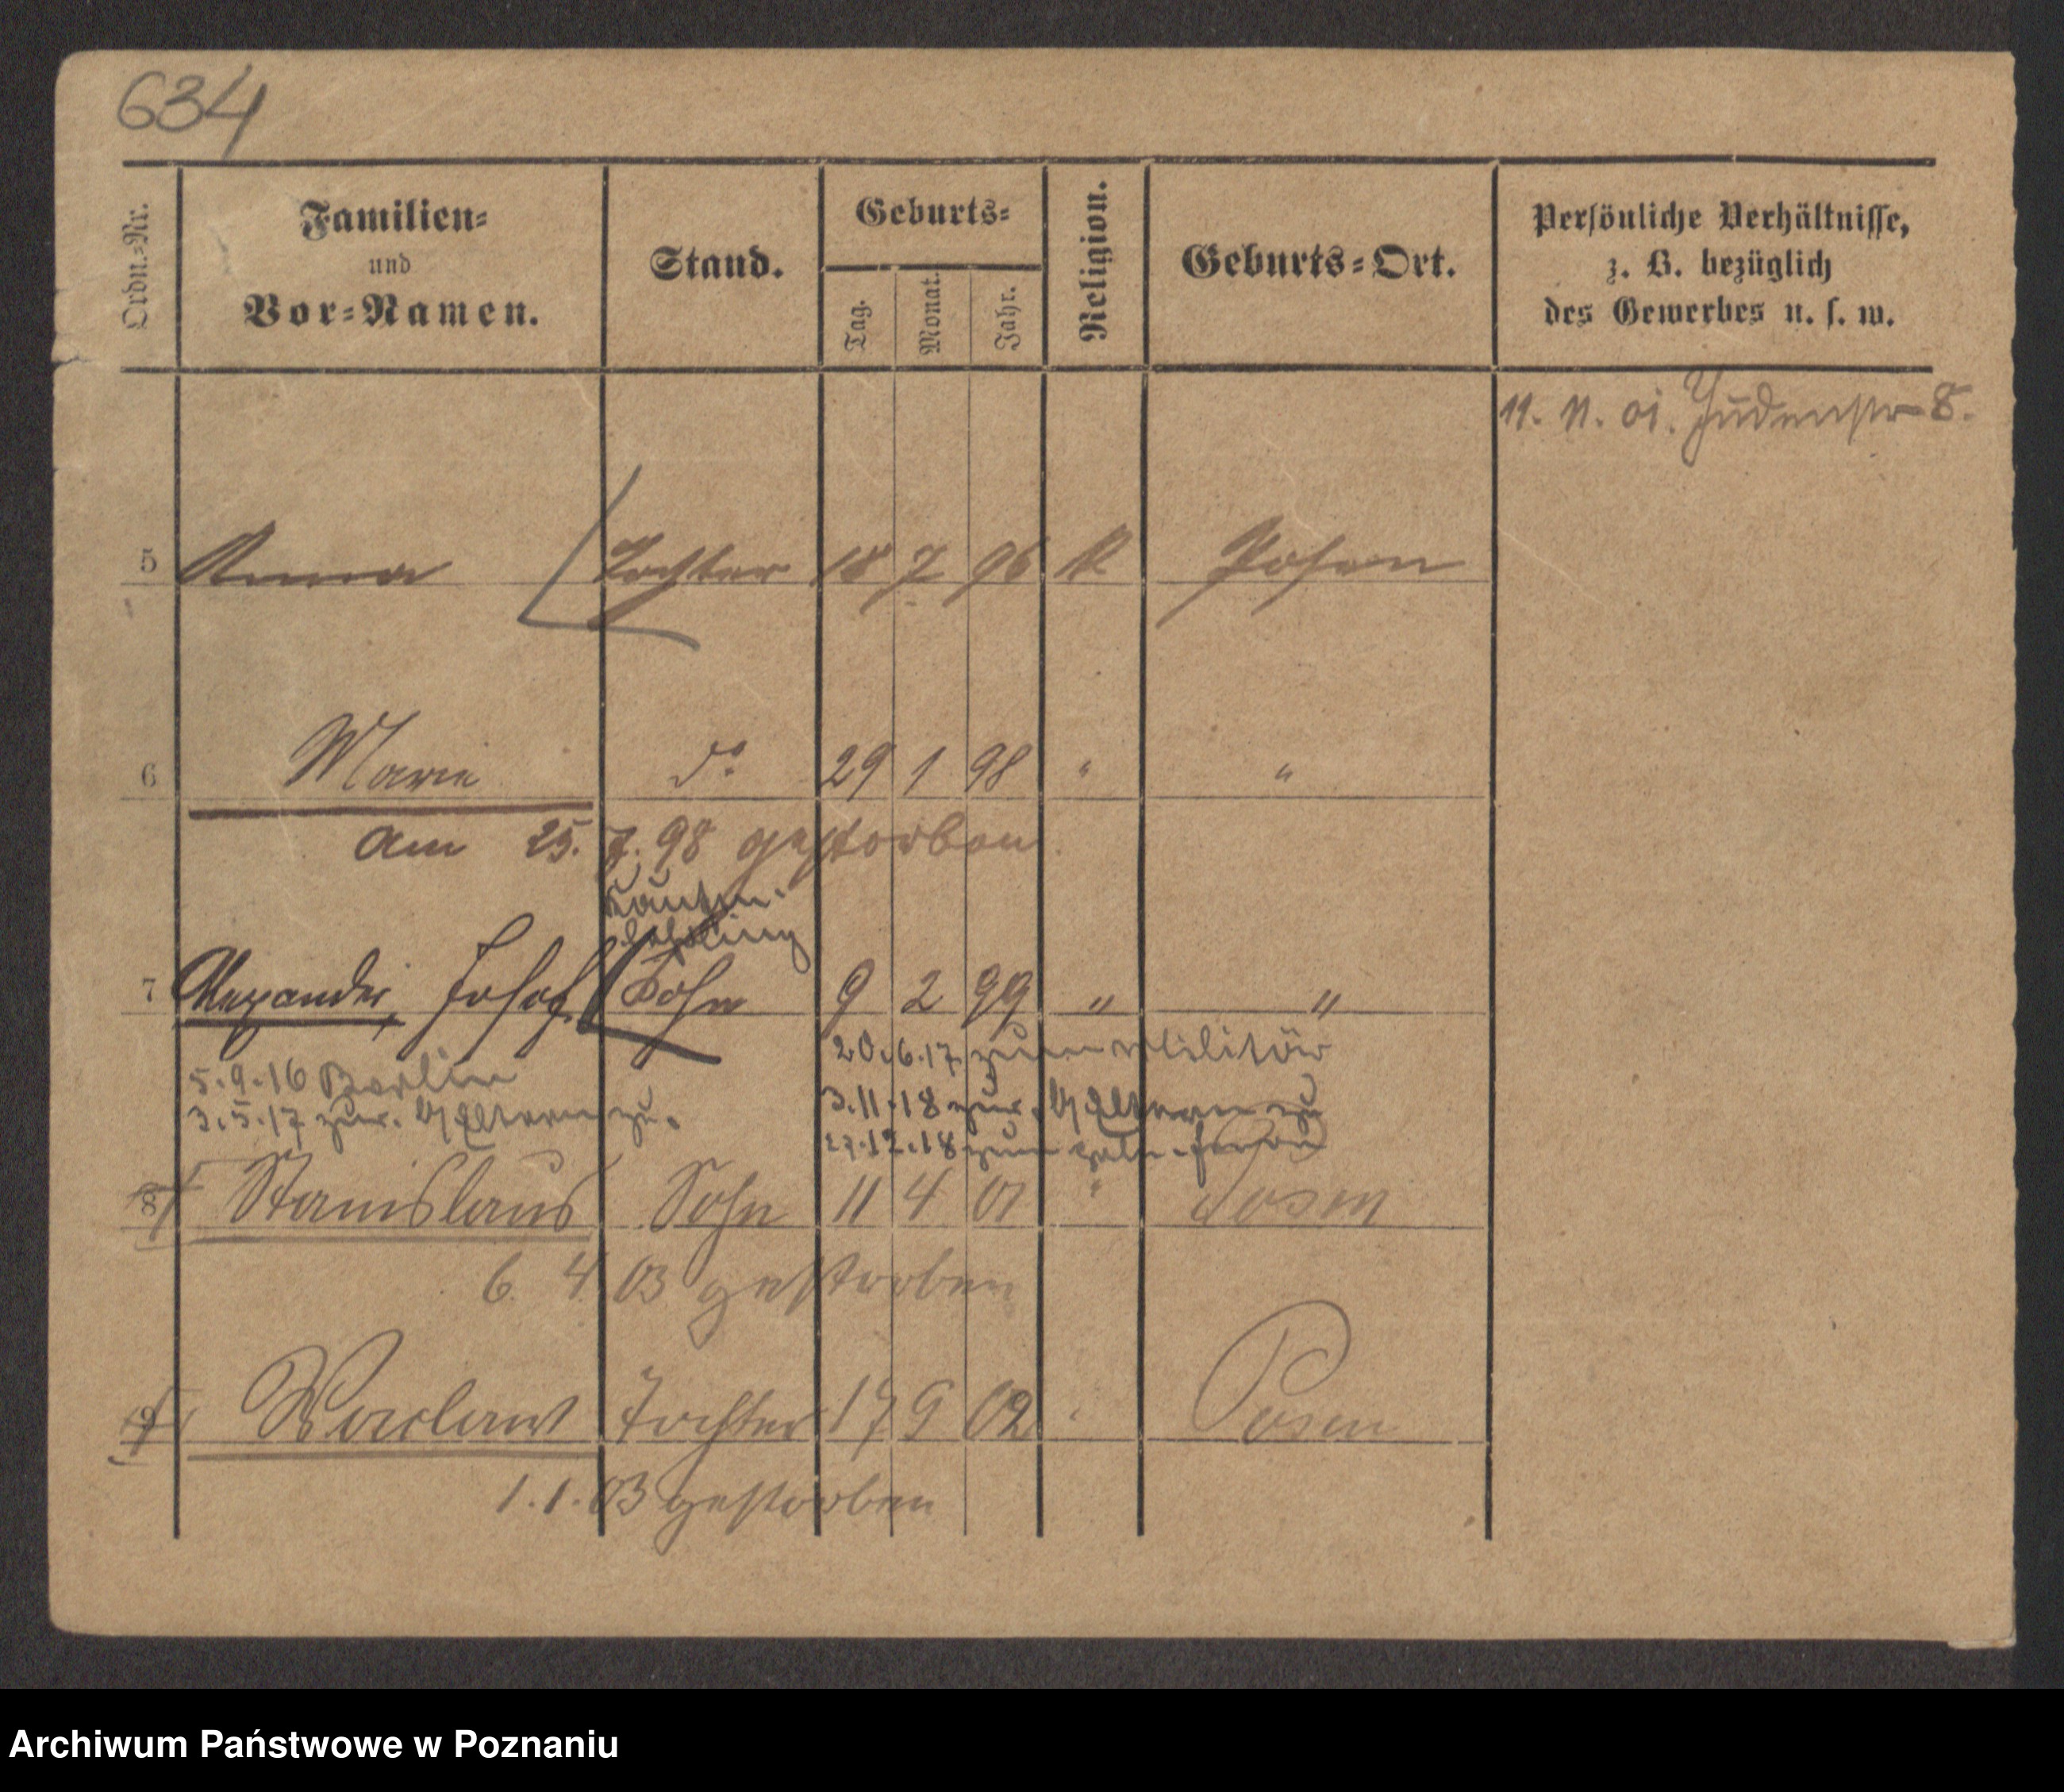 634
Ordn.-Nr.
Familien-
und
Vor-Namen.
Stand.
Geburts-
Tag.
Monat.
Jahr.
Religion.
Geburts-Ort.
Persönliche Verhältnisse,
z. B. bezüglich
des Gewerbes u. s. w.
11. 11. 01. Judenstr 8.
5 Anna Tochter 18 7 96 K Posen
6 Marie do 29 1 98 " "
am 25. 7. 98 gestorben
Kaufm.
Lehrling
7 Alexander, Josef Sohn 9 2 99 " "
20.6.17. zum Militär
5.9.16 Berlin
3.11.18 zur. Eltern zu
3.5.17 zur. Eltern zu.
27.12.18 zum
8 Stanislaus Sohn 11 4 01 " Posen
6. 4. 03 gestorben
9 Waclawa Tochter 17 9 02 " Posen
1.1.03 gestorben
Archiwum Państwowe w Poznaniu